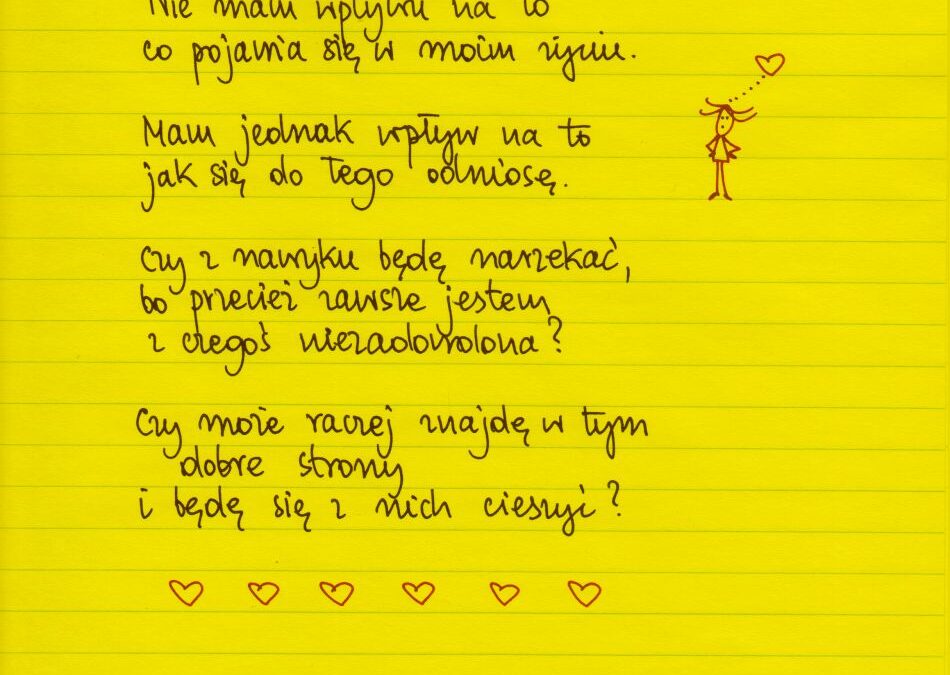 Nie mam wpływu na to
co pojawia się w moim życiu.
Mam jednak wpływ na to
jak się do tego odniosę.
Czy z nawyku będę narzekać,
bo przecież zawsze jestem
z czegoś niezadowolona?
Czy może raczej znajdę w tym
dobre strony
i będę się z nich cieszyć?